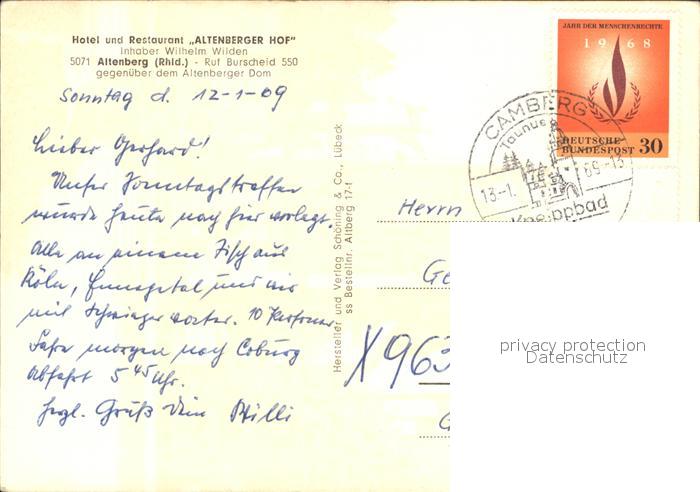 Hotel und Restaurant „ALTENBERGER HOF"
Inhaber Wilhelm Wilden
5071 Altenberg (Rhld.) - Ruf Burscheid 550
gegenüber dem Altenberger Dom
Sonntag d. 12-1-69
Lieber Gerhard!
Unser Sonntagstreffen
wurde heute nach hier verlegt.
Alle an einem Tisch aus
Köln, Ennepetal und wir
mit Schwiegervater. 10 Personen.
Fahre morgen nach Coburg
Abfahrt 5 45 Uhr.
Herzl. Gruß Dein Willi
Hersteller und Verlag Schöning & Co., Lübeck
ss Bestellnr. Altberg 17-f
JAHR DER MENSCHENRECHTE
1968
DEUTSCHE
BUNDESPOST 30
CAMBERG
Taunus
13-1. 69-13
Kneippbad
Herrn
Ge
X963
G
privacy protection
Datenschutz